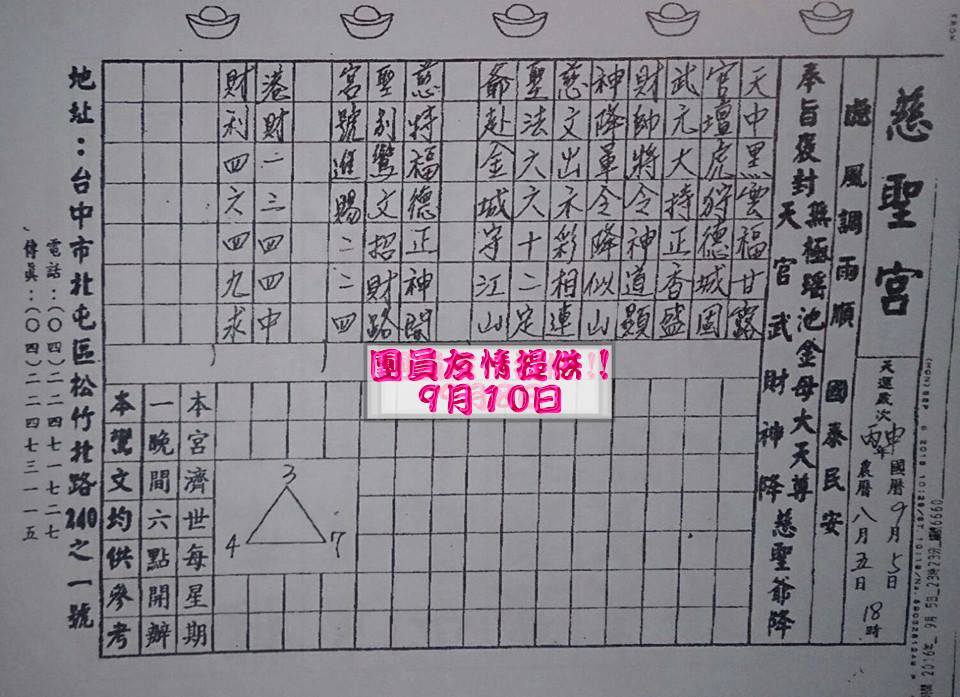 慈聖宮
天運歲次丙申年
國曆9月5日
農曆八月五日
18時
虎 風調雨順 國泰民安
奉旨褒封無極瑤池金母大天尊
天官武財神降慈聖爺降
天中黑雲福甘露
官壇虎狩德城固
武元大持正香盛
財帥將令神道顯
神降軍令降似山
慈文出示彩相連
聖法六六十二定
爺赴金城守江山
慈特福德正神開
聖別鸞文招財路
宮號進賜二二四
港財二三四四中
財利四六四九求
團員友情提供!!
9月10日
3
4
7
本宮濟世每星期
一晚間六點開辦
本鸞文均供參考
地址：台中市北屯區松竹北路240之一號
電話：(〇四)二二四七一七二七
傳真：(〇四)二二四七三一一五
2016年 9月 5日 23時23分